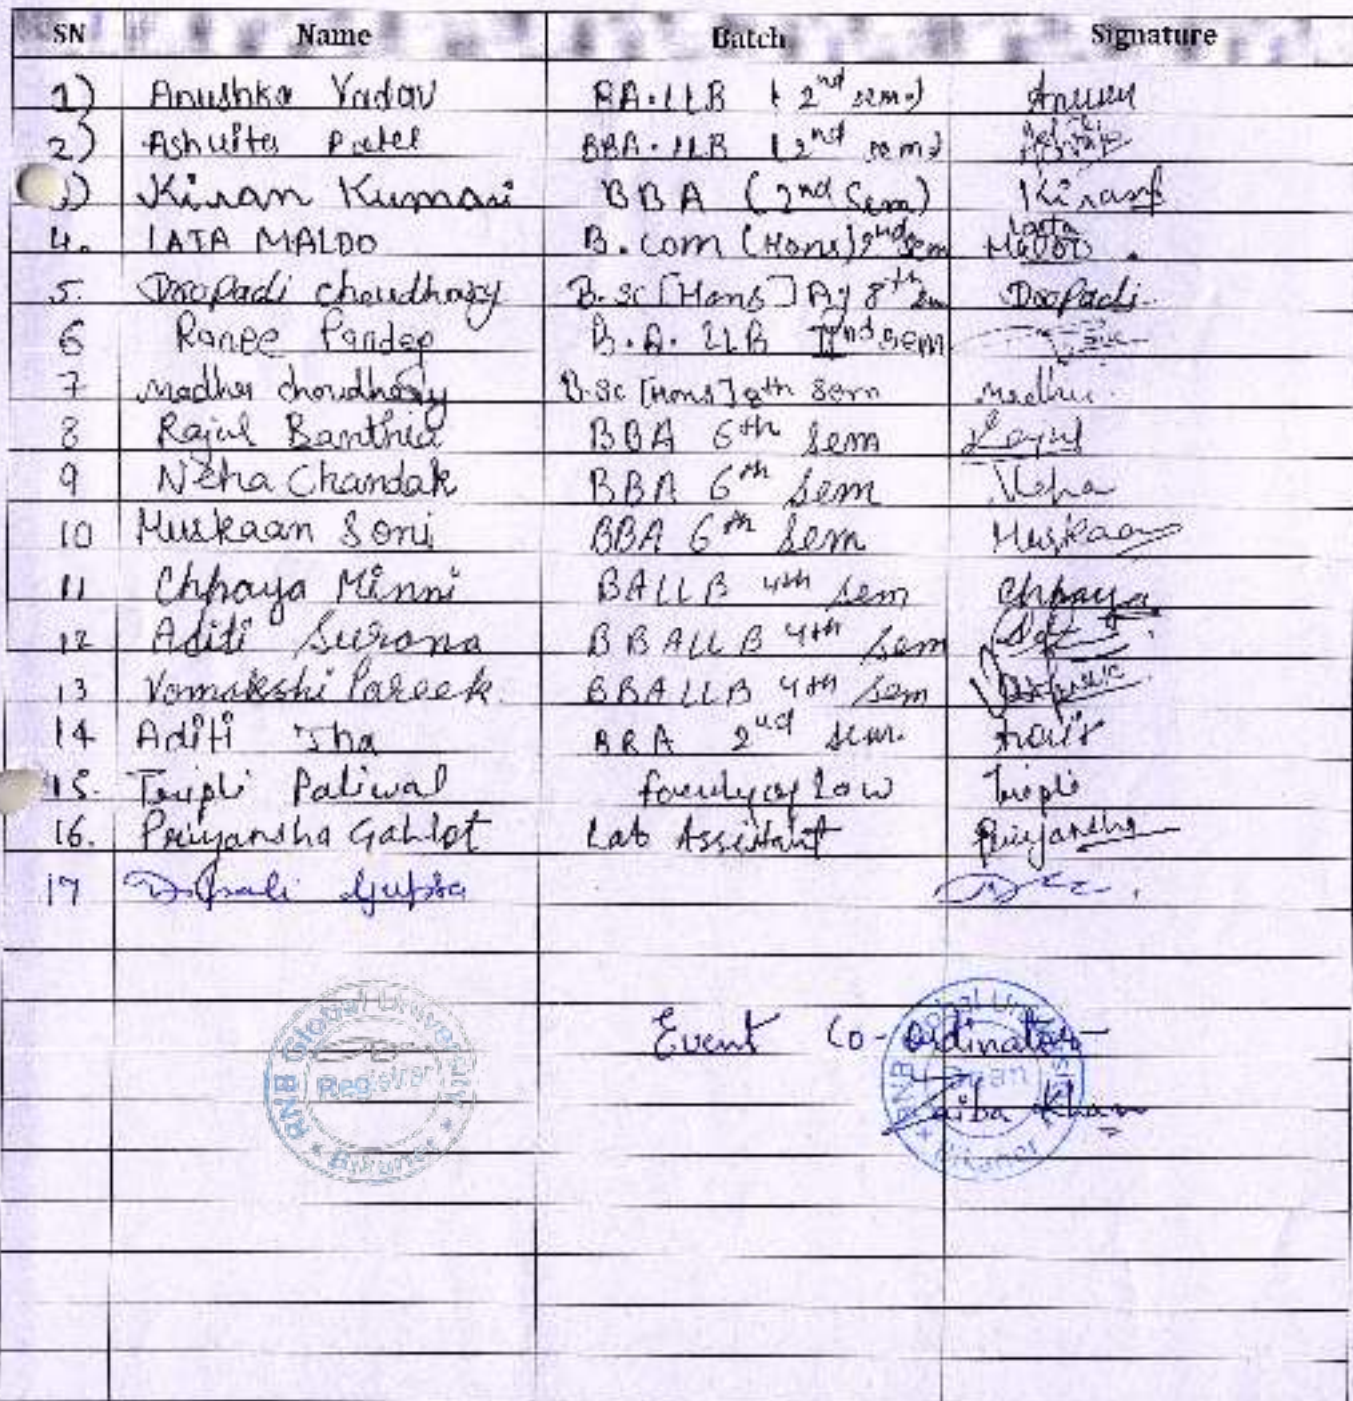 SN Name Batch Signature
1) Anushka Yadav BA.LLB (2nd sem)
2) Ashuita Patel BBA.LLB (2nd sem)
3) Kiran Kumari BBA (2nd Sem) Kiran
4. LATA MALDO B.com (Hons) 2nd sem Lata
5. Dropadi choudhary B.sc [Hons] Ag 8th Sem Dropadi
6 Ranee Pandep B.A. LLB IInd sem
7 Madhu choudhary B.sc [Hons] 8th Sem Madhu
8 Rajul Banthia BBA 6th Sem Rajul
9 Neha Chandak BBA 6th Sem Neha
10 Muskaan Soni BBA 6th Sem Muskaan
11 Chhaya Minni BALLB 4th Sem Chhaya
12 Aditi Surana BBALLB 4th Sem
13 Vamakshi Pareek BBALLB 4th Sem
14 Aditi Jha BBA 2nd Sem. Aditi
15. Tripti Paliwal faculty of Law Tripti
16. Priyansha Gahlot Lab Assistant Priyansha
17 Dipali Gupta
RNB Global University
Registrar
Bikaner
Event Co-ordinator
RNB Global University
Dean
Zaiba Khan
Bikaner